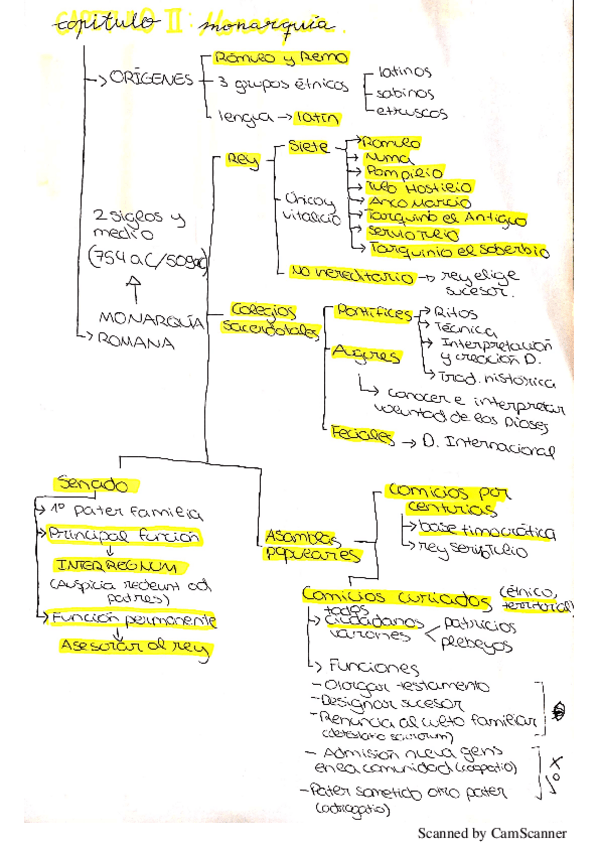 CAPITULO II: Monarquía.
ORÍGENES
Rómulo y Remo
3 grupos étnicos
latinos
sabinos
etruscos
lengua → latín
MONARQUÍA
ROMANA
2 siglos y
medio
(754 aC/509aC)
Rey
Siete
Rómulo
Numa
Pompilio
Tulo Hostilio
Anco Marcio
Tarquino el Antiguo
Servio Tulio
Tarquinio el Soberbio
Único y
vitalicio
No hereditario → rey elige
sucesor.
Colegios
sacerdotales
Pontífices
Ritos
Técnica
Interpretación
y creación D.
Trad. histórica
Augres
conocer e interpretar
voluntad de los Dioses
Feciales → D. Internacional
Senado
1º pater familia
Principal función
INTERREGNUM
(Auspicia redeunt ad
patres)
Función permanente
Asesorar al rey
Asambleas
populares
Comicios por
centurias
base timocrática
rey servio Tulio
Comicios curiados (étnico,
territorial)
todos
ciudadanos
varones
patricios
plebeyos
Funciones
- Otorgar testamento
- Designar sucesor
- Renuncia al culto familiar
(detestatio sacrorum)
- Admisión nueva gens
en la comunidad (cooptatio)
- Pater sometido otro pater
(adrogatio)
Scanned by CamScanner